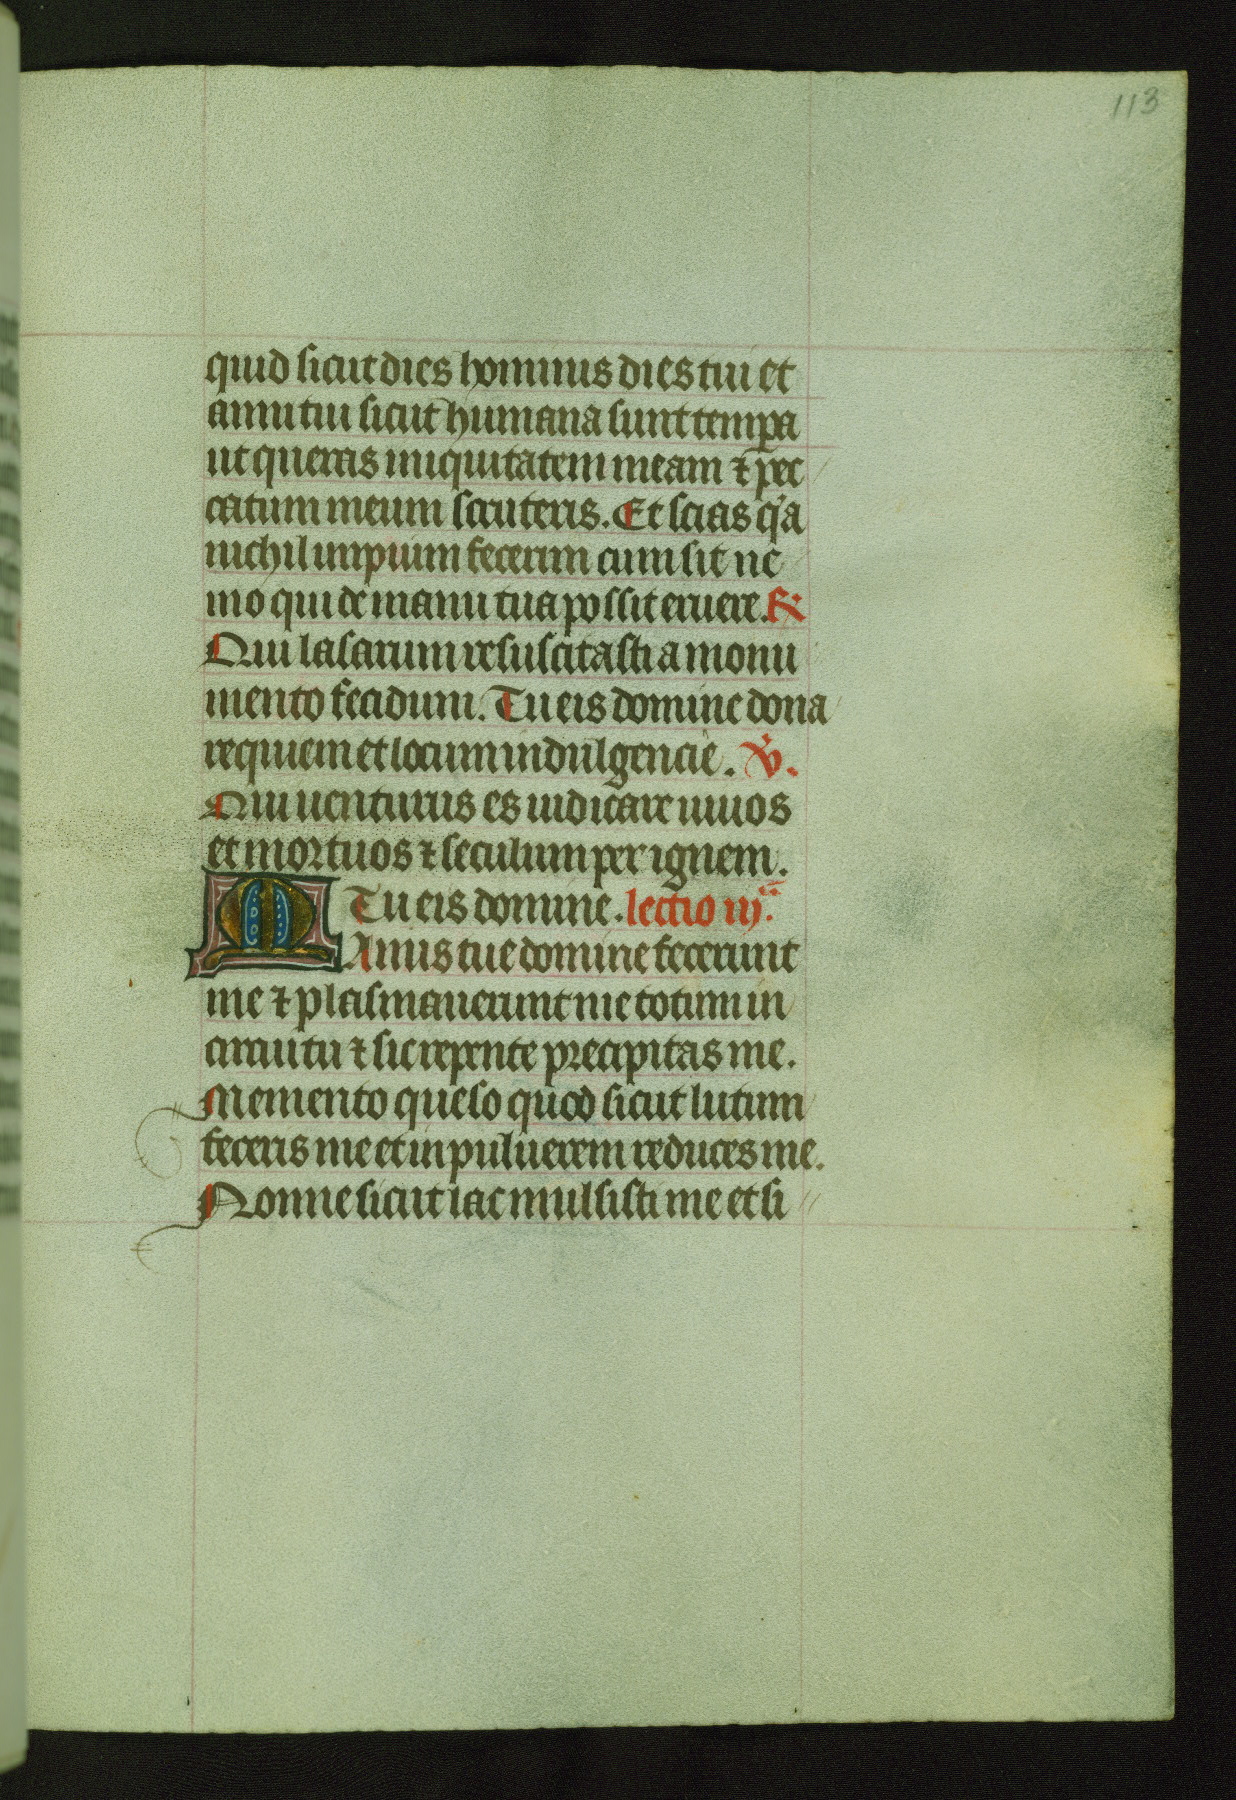 113
quid sicut dies hominis dies tui et
anni tui sicut humana sunt tempa
ut queras iniquitatem meam ⁊ pec
catum meum scruteris. Et scias qͥa
nichil impium fecerim cum sit ne
mo qui de manu tua possit eruere. ℟
Qui lasarum resuscitasti a monu
mento fecidum. Tu eis domine dona
requiem et locum indulgencie. ℣.
Qui uenturus es iudicare uiuos
et mortuos ⁊ seculum per ignem.
Tu eis domine. lectio iij.
Manus tue domine fecerunt
me ⁊ plasmauerunt me totum in
circuitu ⁊ sic repente precipitas me.
Memento queso quod sicut lutum
feceris me et in puluerem reduces me.
Nonne sicut lac mulsisti me et si